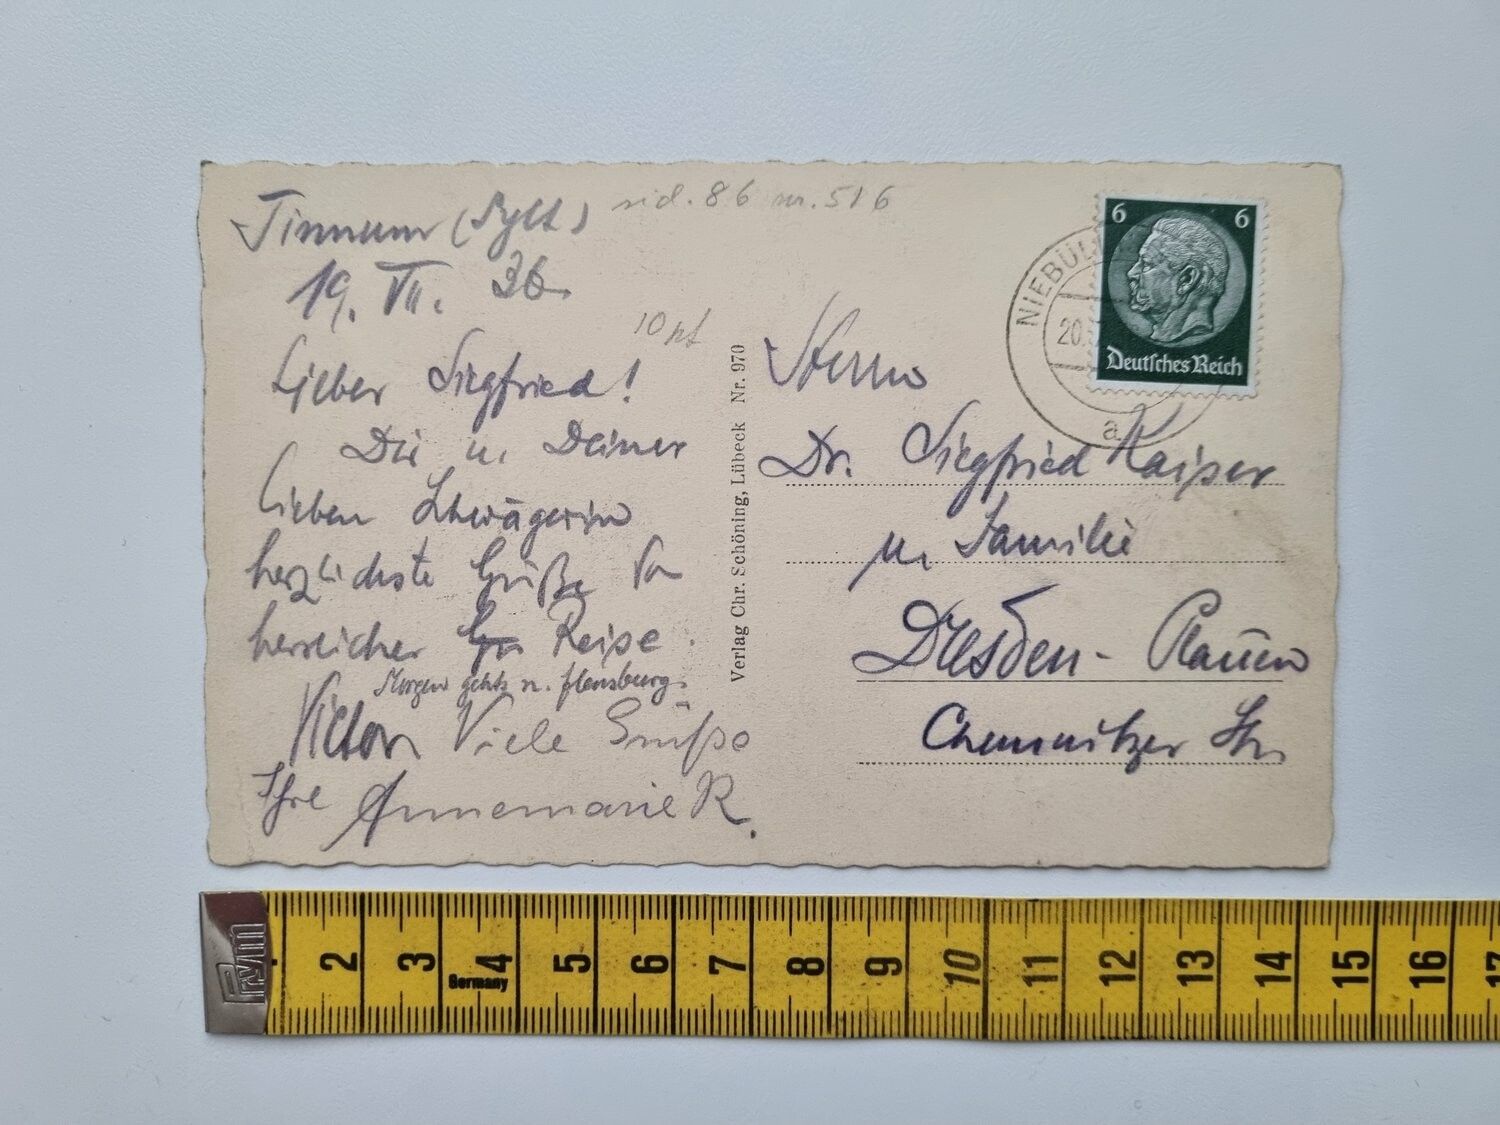 Tinnum (Sylt)
sid. 86 nr. 516
19. VII. 36.
10 pt
Lieber Siegfried!
Dir u. Deiner
lieben Schwägerin
herzlichste Grüße von
herrlicher Reise.
Morgen gehts n. Flensburg.
Victor Viele Grüße
Ihre Annemarie R.
Verlag Chr. Schöning, Lübeck Nr. 970
6 6
Deutsches Reich
NIEBÜLL
20.
a
Herrn
Dr. Siegfried Kaiser
u. Familie
Dresden-Plauen
Chemnitzer Str.
Prym
2 3 4 5 6 7 8 9 10 11 12 13 14 15 16 17
Germany